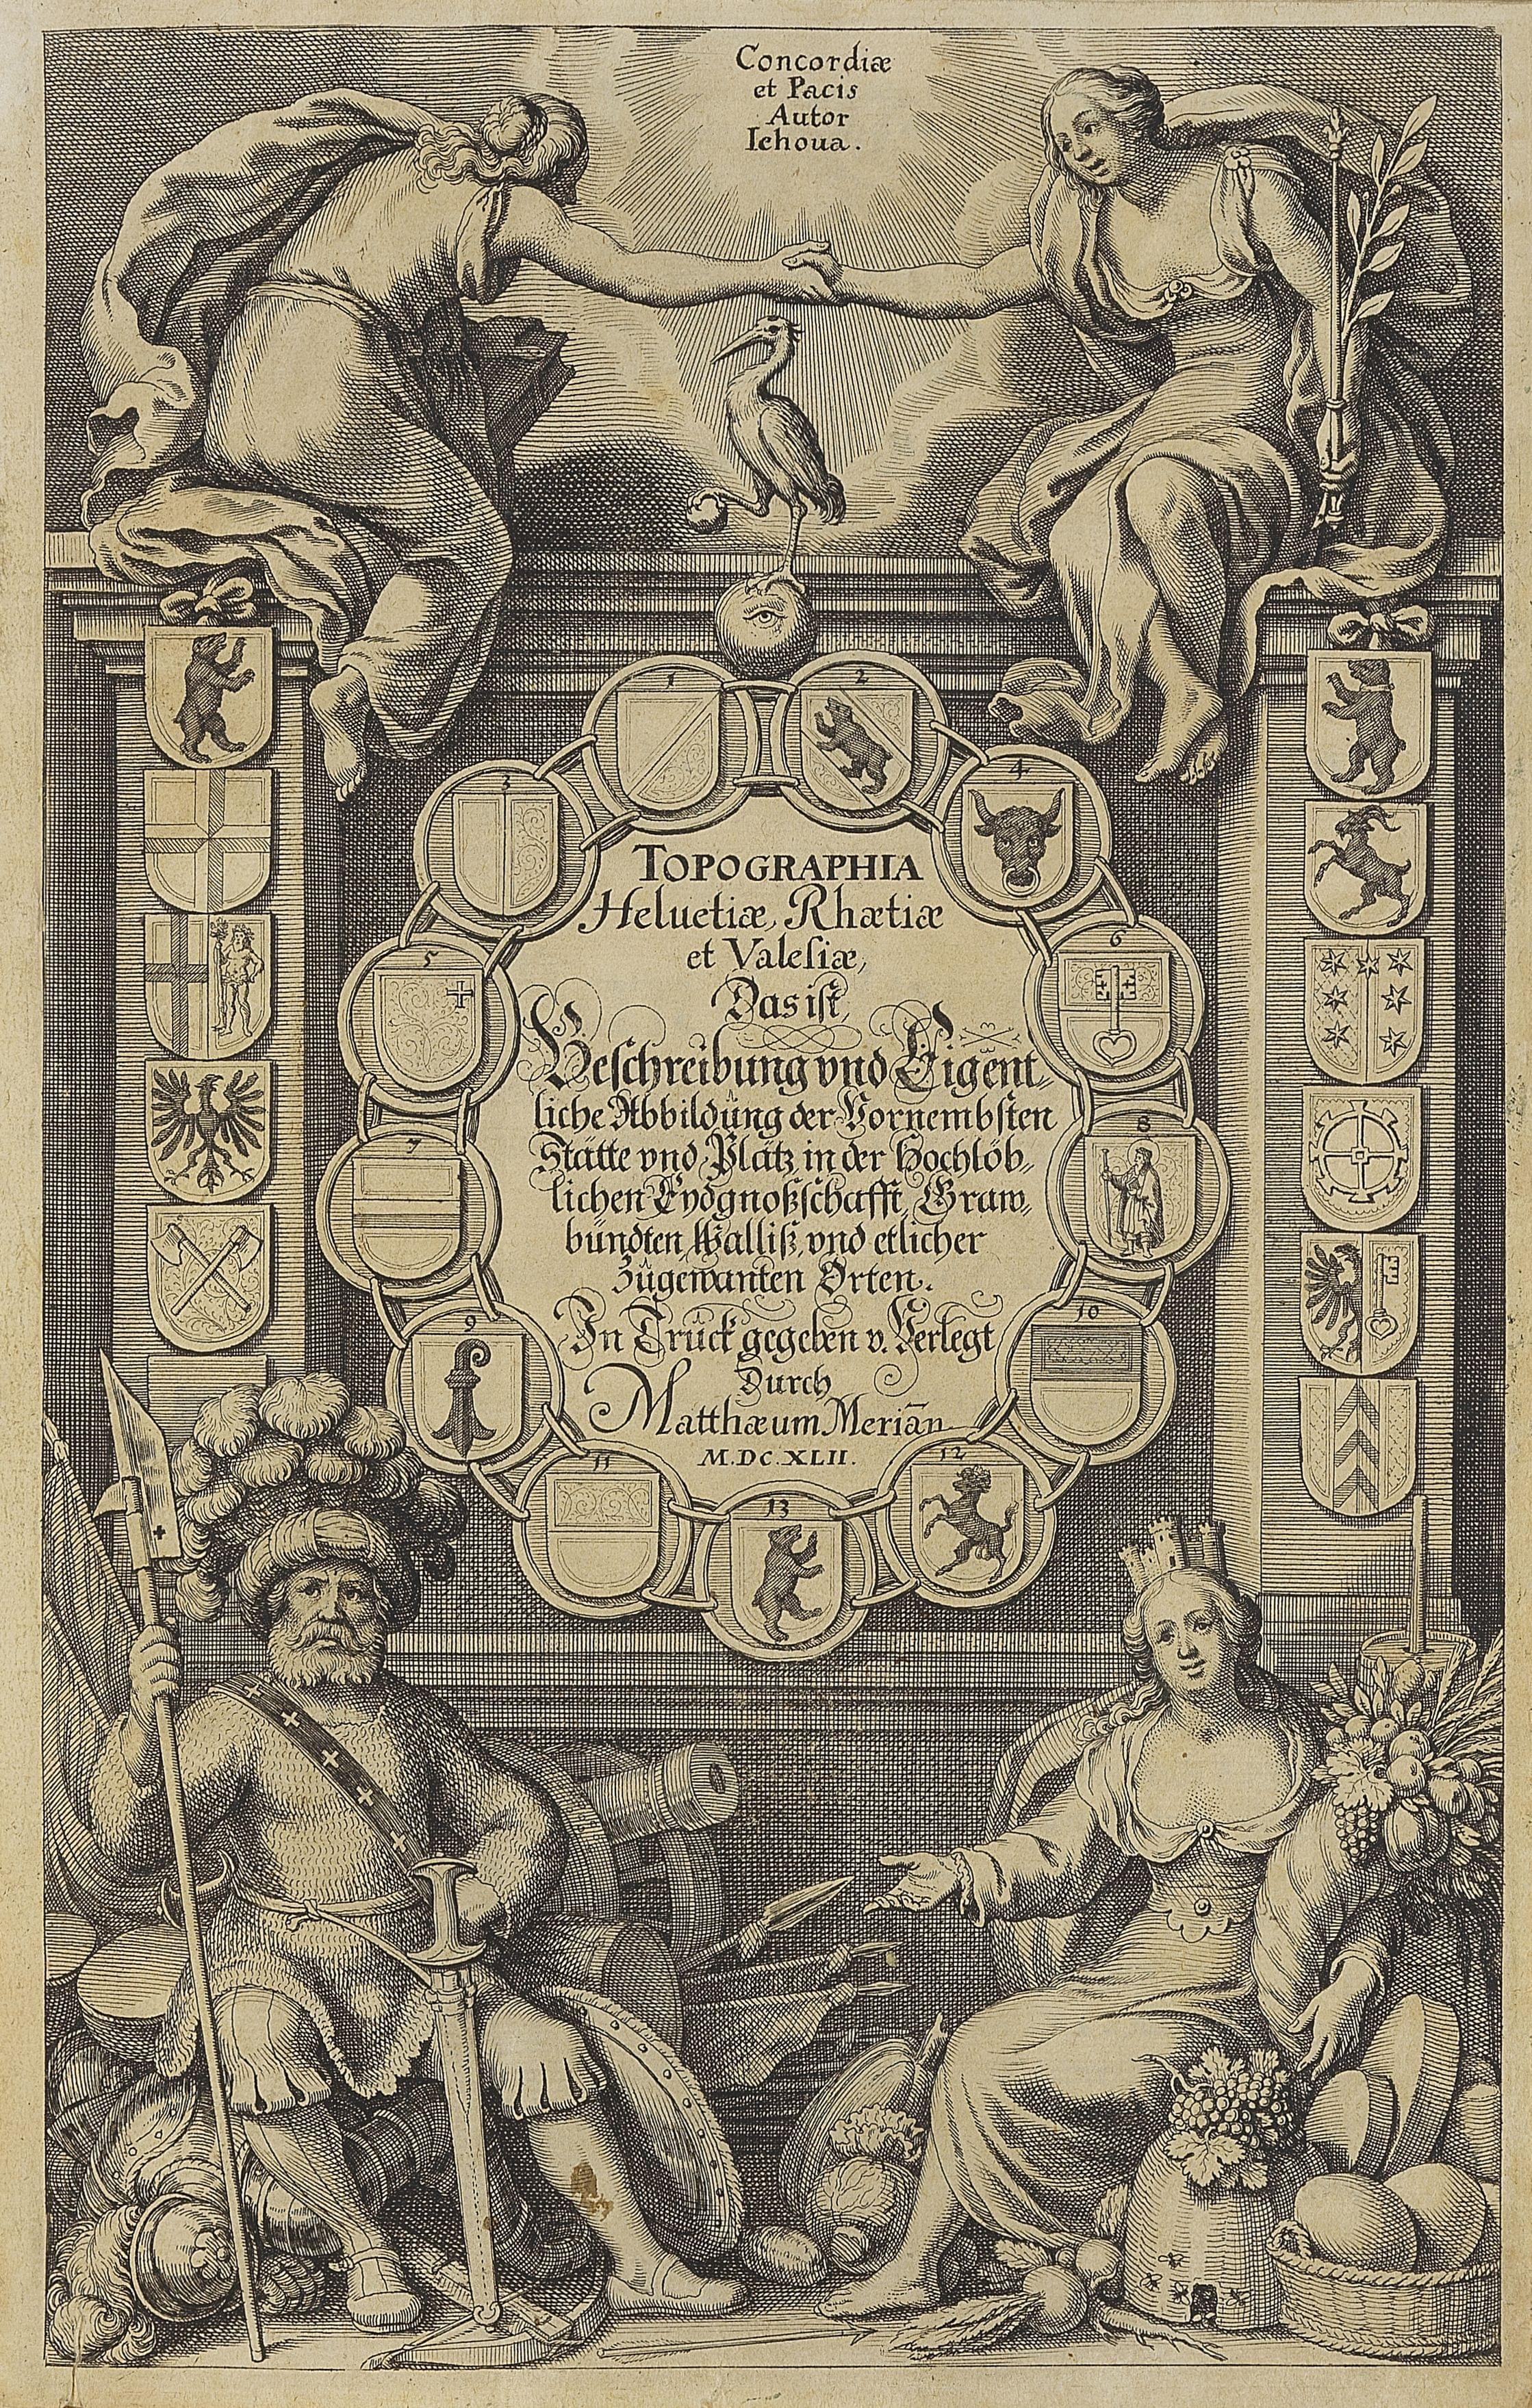 Concordiæ
et Pacis
Autor
Iehoua.
1
2
3
4
5
6
7
8
9
10
11
12
13
TOPOGRAPHIA
Heluetiæ, Rhætiæ
et Valesiæ,
Das ist,
Beschreibung vnd Eigent-
liche Abbildung der Vornembsten
Stätte vnd Plätz in der Hochlöb-
lichen Eydgnoßschafft, Graw-
bündten, Walliß, vnd etlicher
Zugewanten Orten.
In Truck gegeben v. Verlegt
Durch
Matthæum Merian
M.DC.XLII.